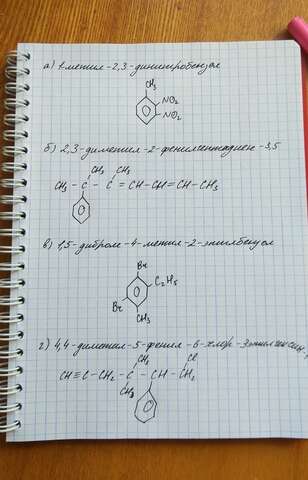 а) 1-метил-2,3-динитробензол
CH₃
NO₂
NO₂
б) 2,3-диметил-2-фенилгептадиен-3,5
CH₃ CH₃
CH₃ - C - C = CH - CH = CH - CH₃
в) 1,5-дибром-4-метил-2-этилбензол
Br
C₂H₅
Br
CH₃
г) 4,4-диметил-5-фенил-6-хлор-
CH₃ Cl
CH ≡ C - CH₂ - C - CH - CH₂
CH₃